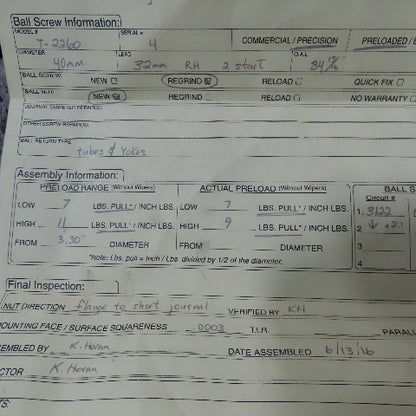 Ball Screw Information:
MODEL # SERIAL #
T-2260 4 COMMERCIAL / PRECISION PRELOADED /
DIAMETER LEAD O.A.L.
40mm 32mm RH 2 start 84 13/16"
BALL SCREW: NEW REGRIND RELOAD QUICK FIX
BALL NUT: NEW REGRIND RELOAD NO WARRANTY
JOURNAL DIAMETER REPAIRS:
OTHER SCREW REPAIR(S):
BALL RETURN TYPE
tubes & yokes
Assembly Information: BALL S
PRELOAD RANGE (Without Wipers) ACTUAL PRELOAD (Without Wipers) Circuit #
LOW 7 LBS. PULL* / INCH LBS. LOW 7 LBS. PULL* / INCH LBS. 1. 3122
HIGH 11 LBS. PULL* / INCH LBS. HIGH 9 LBS. PULL* / INCH LBS. 2 ↓ +2.1
FROM 3.30" DIAMETER FROM DIAMETER 3
*Note: Lbs. pull = Inch / Lbs. divided by 1/2 of the diameter. 4
Final Inspection:
NUT DIRECTION flange to short journal VERIFIED BY KH
OUNTING FACE / SURFACE SQUARENESS .0003 T.I.R. PARALL
SEMBLED BY K. Horan DATE ASSEMBLED 6/13/16
CTOR K. Horan
TS: